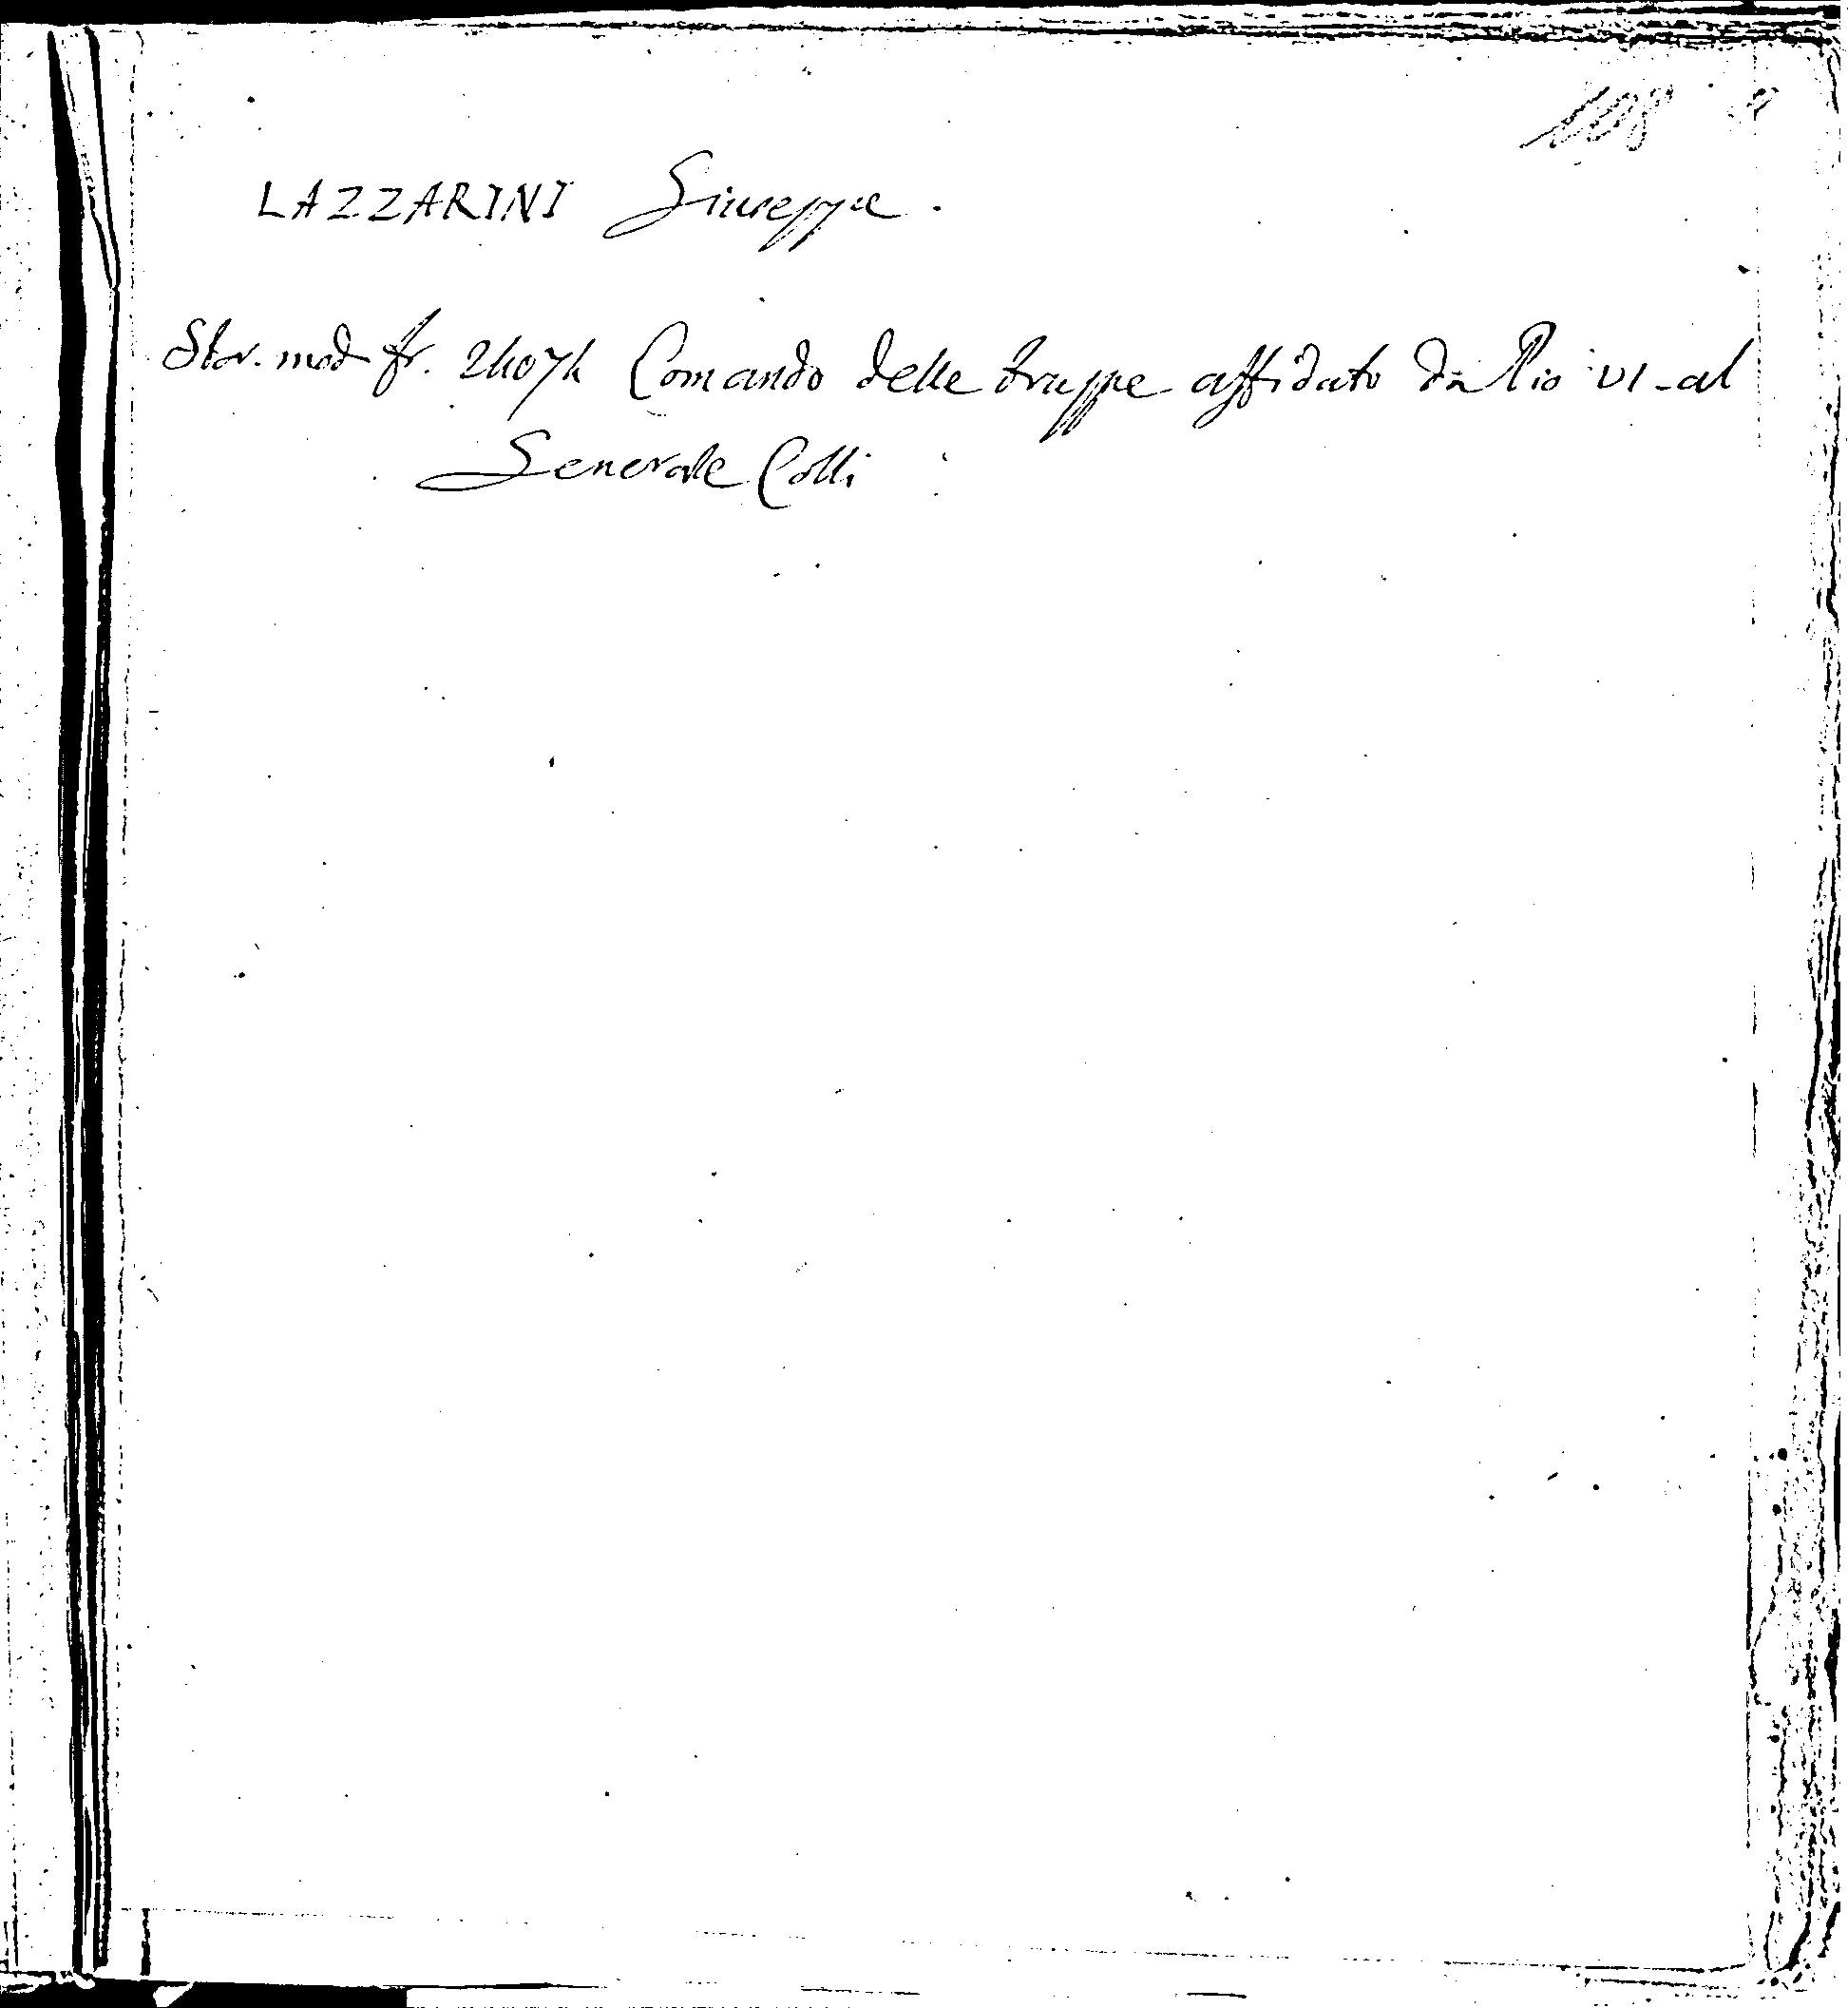 108
LAZZARINI Giuseppe.
Stor. mod fr. 24074 Comando delle truppe affidato da Pio VI-al
Generale Colli